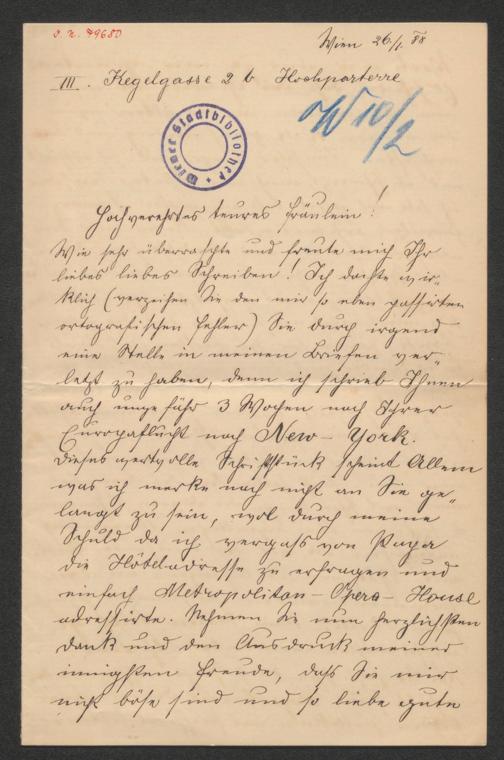 J. N. 79680
Wien 26./1. 88
III. Kegelgasse 2 b Hochparterre
W 10/2
Wiener Stadtbibliothek
Hochverehrtes teures Fräulein!
Wie sehr überraschte und freute mich Ihr
liebes liebes Schreiben! Ich dachte wir-
klich (verzeihen Sie den mir so eben passirten
ortografischen Fehler) Sie durch irgend
eine Stelle in meinen Briefen ver-
letzt zu haben, denn ich schrieb Ihnen
auch ungefähr 3 Wochen nach Ihrer
Europaflucht nach New-York.
Dieses wertvolle Schriftstück scheint Allem
was ich merke nach nicht an Sie ge-
langt zu sein, wol durch meine
Schuld da ich vergass von Papa
die Hôteladresse zu erfragen und
einfach Metropolitan-Opera-House
adressirte. Nehmen Sie nun herzlichsten
Dank und den Ausdruck meiner
innigsten Freude, dass Sie mir
nicht böse sind und so liebe gute